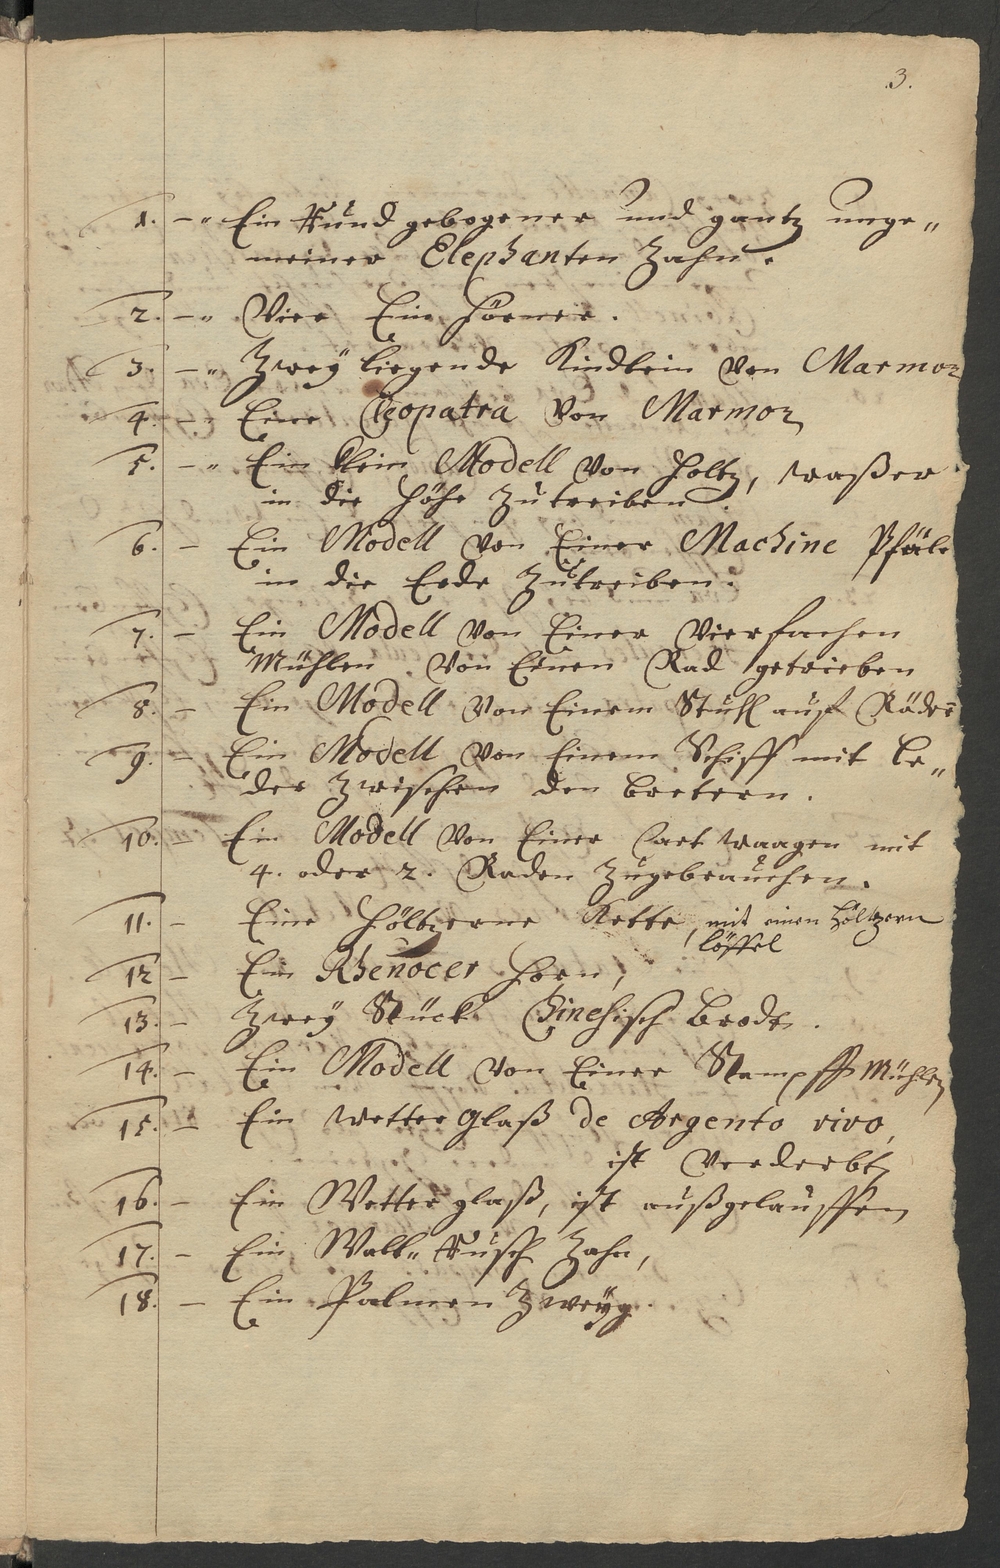 3.
1. -" Ein Rund gebogener und gantz unge"
meiner Elephanten Zahn.
2. -" Vier Ein hörner.
3. -" Zweÿ liegende Kindlein von Marmor
4. - Eine Cleopatra von Marmor
5. -" Ein klein Modell von Holtz, waßer
in die höhe zutreiben.
6. - Ein Modell von Einer Machine Pfäle
in die Erde zutreiben.
7. - Ein Modell von Einer Vierfachen
Mühlen von Einen Rad getrieben
8. - Ein Modell von Einem Stuhl auf Räder
9. - Ein Modell von Einem Schiff mit le"
der zwischen den bretern.
10. - Ein Modell von Einer Cart waagen mit
4. oder 2. Raden zugebrauchen.
11. - Eine höltzerne Kette, mit einen höltzern
löffel
12 - Ein Rhenocer horn,
13. - Zweÿ Stück Chinesisch brodt.
14. - Ein Modell von Einer Stampff Mühlen
15. - Ein wetter Glaß de Argento vivo,
ist verderbt
16. - Ein Wetter glaß, ist außgelauffen
17. - Ein Wall" Zahn,
18. - Ein Palmen Zweÿg.